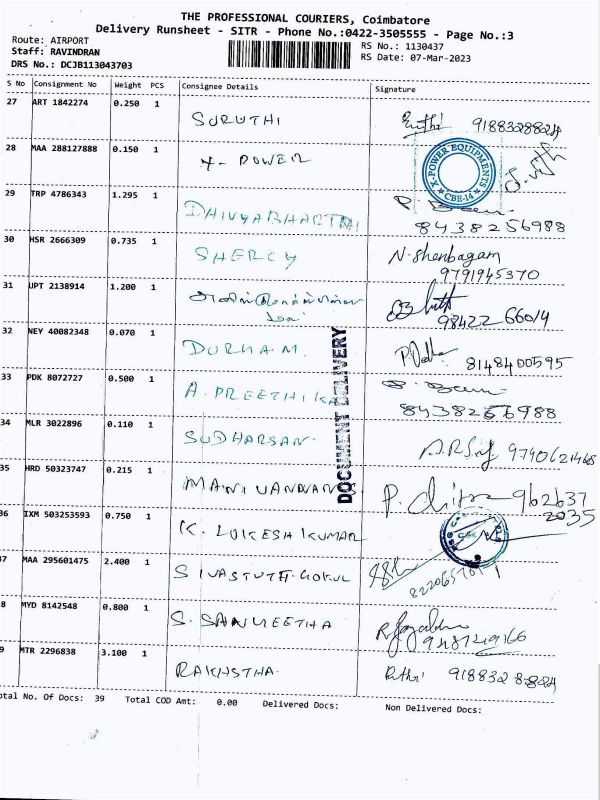 THE PROFESSIONAL COURIERS, Coimbatore
Delivery Runsheet - SITR - Phone No.:0422-3505555 - Page No.:3
Route: AIRPORT
Staff: RAVINDRAN
DRS No.: DCJB113043703
RS No.: 1130437
RS Date: 07-Mar-2023
S No Consignment No Weight PCS Consignee Details Signature
27 ART 1842274 0.250 1 SURUTHI 9188328824
28 MAA 288127888 0.150 1 X- POWER
X-POWER EQUIPMENTS
CBE-14
29 TRP 4786343 1.295 1 DHIVYABHARTHI
8438256988
30 HSR 2666309 0.735 1 SHERCY N. Shenbagam
9791945370
31 UPT 2138914 1.200 1
98422 66014
32 NEY 40082348 0.070 1 DURHAM. 8148400595
33 PDK 8072727 0.500 1 A. PREETHIKA
8438256988
DOCUMENT DELIVERY
34 MLR 3022896 0.110 1 SUDHARSAN.
35 HRD 50323747 0.215 1 MANIVANNAN P. Chitra 962637
2035
36 IXM 503253593 0.750 1 K. LOKESH KUMAR
37 MAA 295601475 2.400 1
8 MYD 8142548 0.800 1 S. SANJEETHA
9487249166
9 MTR 2296838 3.100 1 RAKHSTHA.
otal No. Of Docs: 39 Total COD Amt: 0.00 Delivered Docs: Non Delivered Docs: